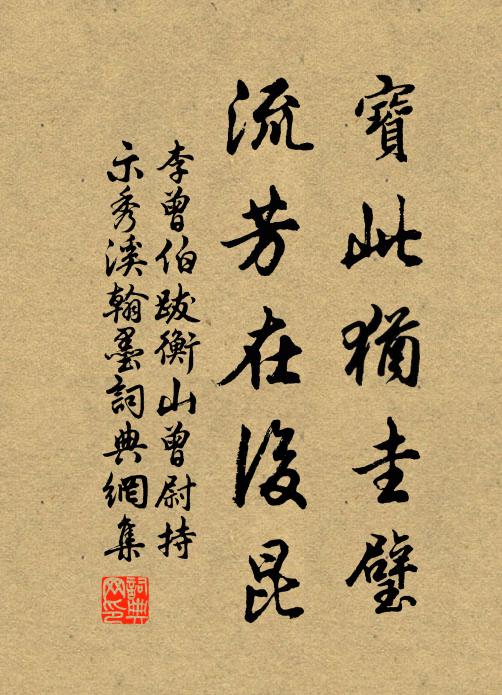 寶此猶圭璧
流芳在後昆
李曾伯跋衡山曾尉持
示秀溪翰墨詞典網集
詞典
网印